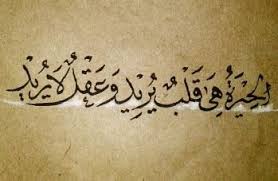 الحِيرَةُ هِيَ قَلْبٌ يُرِيد وَ عَقْلٌ لَا يُرِيْد